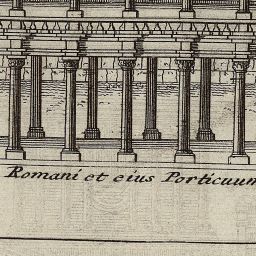 Romani et eius Porticuum